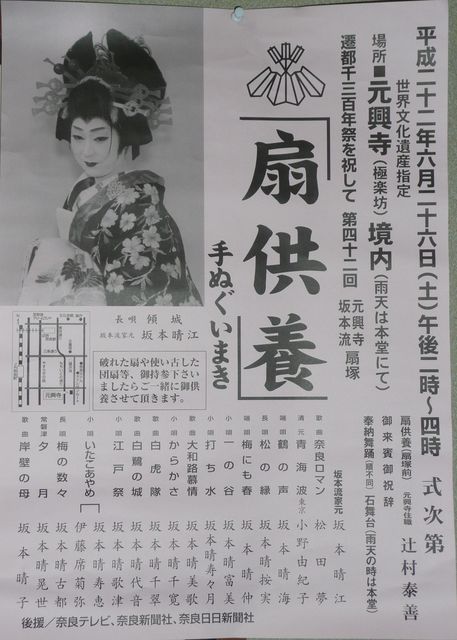 平成二十二年六月二十六日(土)午後二時〜四時
世界文化遺産指定
場所■元興寺(極楽坊)境内(雨天は本堂にて)
遷都千三百年祭を祝して 第四十二回 元興寺 坂本流 扇塚
「扇供養」
手ぬぐいまき
長唄 傾城
坂本流家元 坂本晴江
破れた扇や使い古した
団扇等、御持参下さい
ましたらご一緒に御供
養させて頂きます。
元興寺
式次第
扇供養(扇塚前) 元興寺住職 辻村泰善
御来賓御祝辞
奉納舞踊(順不同) 石舞台(雨天の時は本堂)
坂本流家元 坂本晴江
歌曲 奈良ロマン 松田夢
清元 青海波 東京 小野由紀子
端唄 鶴の声 坂本晴海
長唄 松の緑 坂本晴按実
端唄 梅にも春 坂本晴仲
小唄 一の谷 坂本晴富美
小唄 打ち水 坂本晴寿々月
歌曲 大和路慕情 坂本晴美歌
小唄 からかさ 坂本晴千寛
歌曲 白虎隊 坂本晴千寛
歌曲 白鷺の城 坂本晴代音
小唄 江戸祭 坂本晴歌津
小唄 いたこあやめ 坂本晴寿恵 伊藤席菊弥
長唄 梅の数々 坂本晴古都
常磐津 夕月 坂本晴晃世
歌曲 岸壁の母 坂本晴子
後援/奈良テレビ、奈良新聞社、奈良日日新聞社